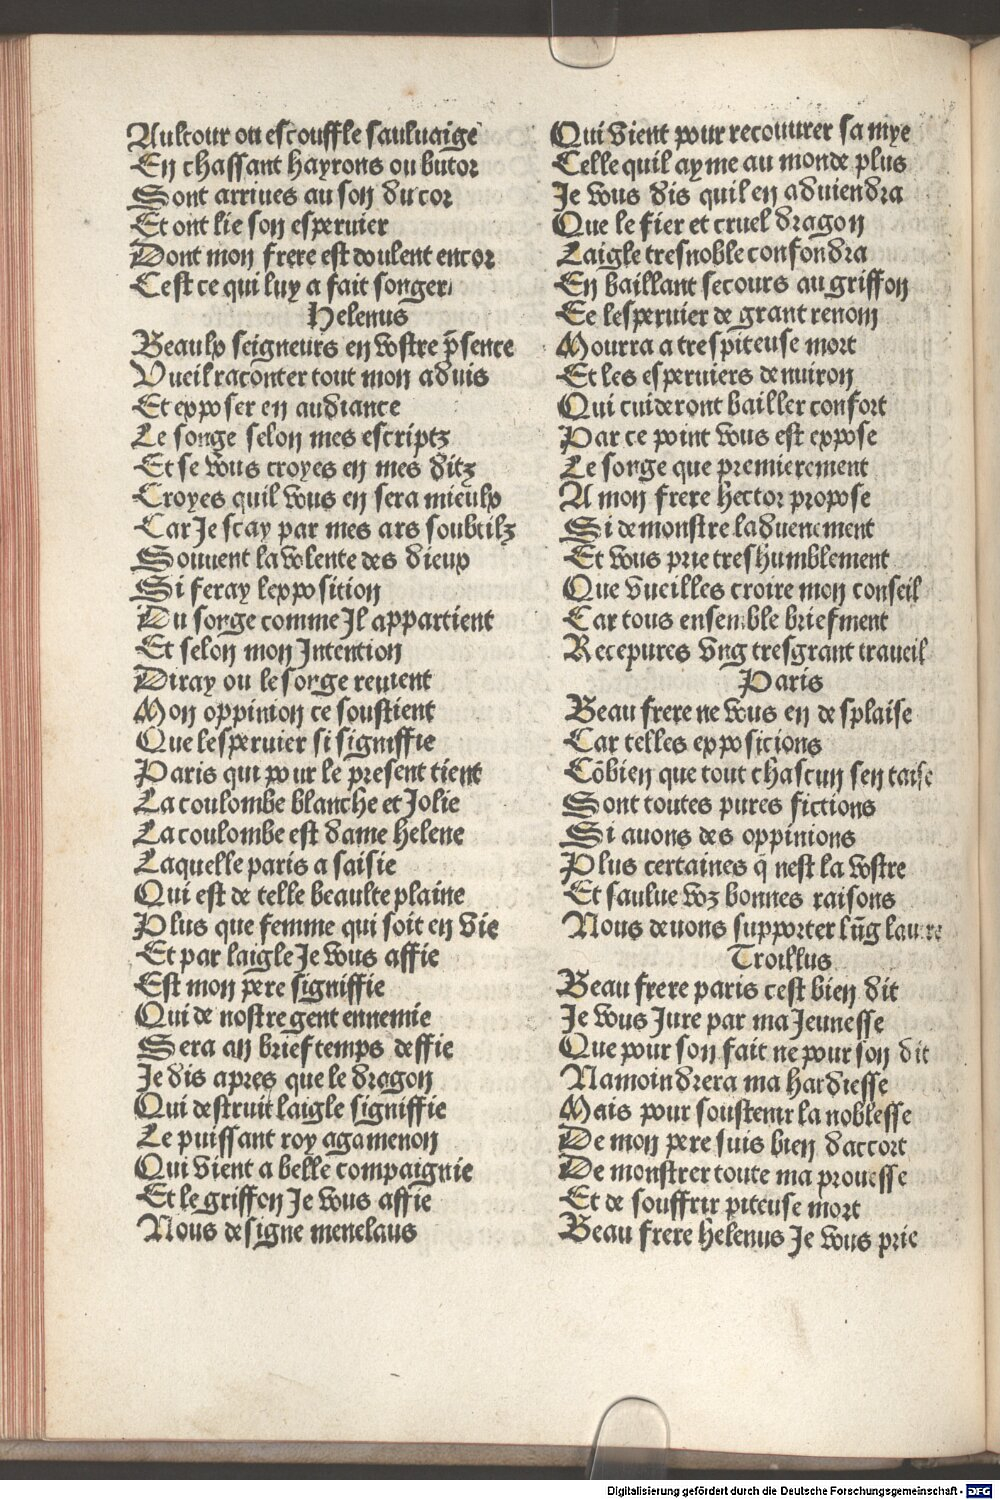 Aultour ou escouffle sauluaige
En chassant hayrons ou butor
Sont arriues au son du cor
Et ont lie son esperuier
Dont mon frere est doulent encor
Cest ce qui luy a fait songer
Helenus
Beaulx seigneurs en vostre p̃sence
Vueil raconter tout mon aduis
Et exposer en audiance
Le songe selon mes escriptz
Et se vous croyes en mes ditz
Croyes quil vous en sera mieulx
Car Je scay par mes ars soubtilz
Souuent la volente des dieux
Si feray lexposition
Du songe comme Il appartient
Et selon mon Intention
Diray ou le songe reuient
Mon oppinion ce soustient
Que lesperuier si signiffie
Paris qui pour le present tient
La coulombe blanche et Jolie
La coulombe est dame helene
Laquelle paris a saisie
Qui est de telle beaulte plaine
Plus que femme qui soit en vie
Et par laigle Je vous affie
Est mon pere signiffie
Qui de nostre gent ennemie
Sera an brief temps deffie
Je dis apres que le dragon
Qui destruit laigle signiffie
Le puissant roy agamenon
Qui vient a belle compaignie
Et le griffon Je vous affie
Nous designe menelaus
Qui vient pour recouurer sa mye
Celle quil ayme au monde plus
Je vous dis quil en aduiendra
Que le fier et cruel dragon
Laigle tresnoble confondra
En baillant secours au griffon
Ee lesperuier de grant renom
Mourra a trespiteuse mort
Et les esperuiers denuiron
Qui cuideront bailler confort
Par ce point vous est expose
Le songe que premierement
A mon frere hector propose
Si demonstre laduenement
Et vous prie treshumblement
Que vueilles croire mon conseil
Car tous ensemble briefment
Recepures vng tresgrant traueil
Paris
Beau frere ne vous en desplaise
Car telles exposicions
Cõbien que tout chascun sen taise
Sont toutes pures fictions
Si auons des oppinions
Plus certaines q̃ nest la vostre
Et saulue voz bonnes raisons
Nous deuons supporter lũg lautre
Troillus
Beau frere paris cest bien dit
Je vous Jure par ma Jeunesse
Que pour son fait ne pour son dit
Namoindrera ma hardiesse
Mais pour soustenir la noblesse
De mon pere suis bien daccort
De monstrer toute ma prouesse
Et de souffrir piteuse mort
Beau frere helenus Je vous prie
Digitalisierung gefördert durch die Deutsche Forschungsgemeinschaft - DFG